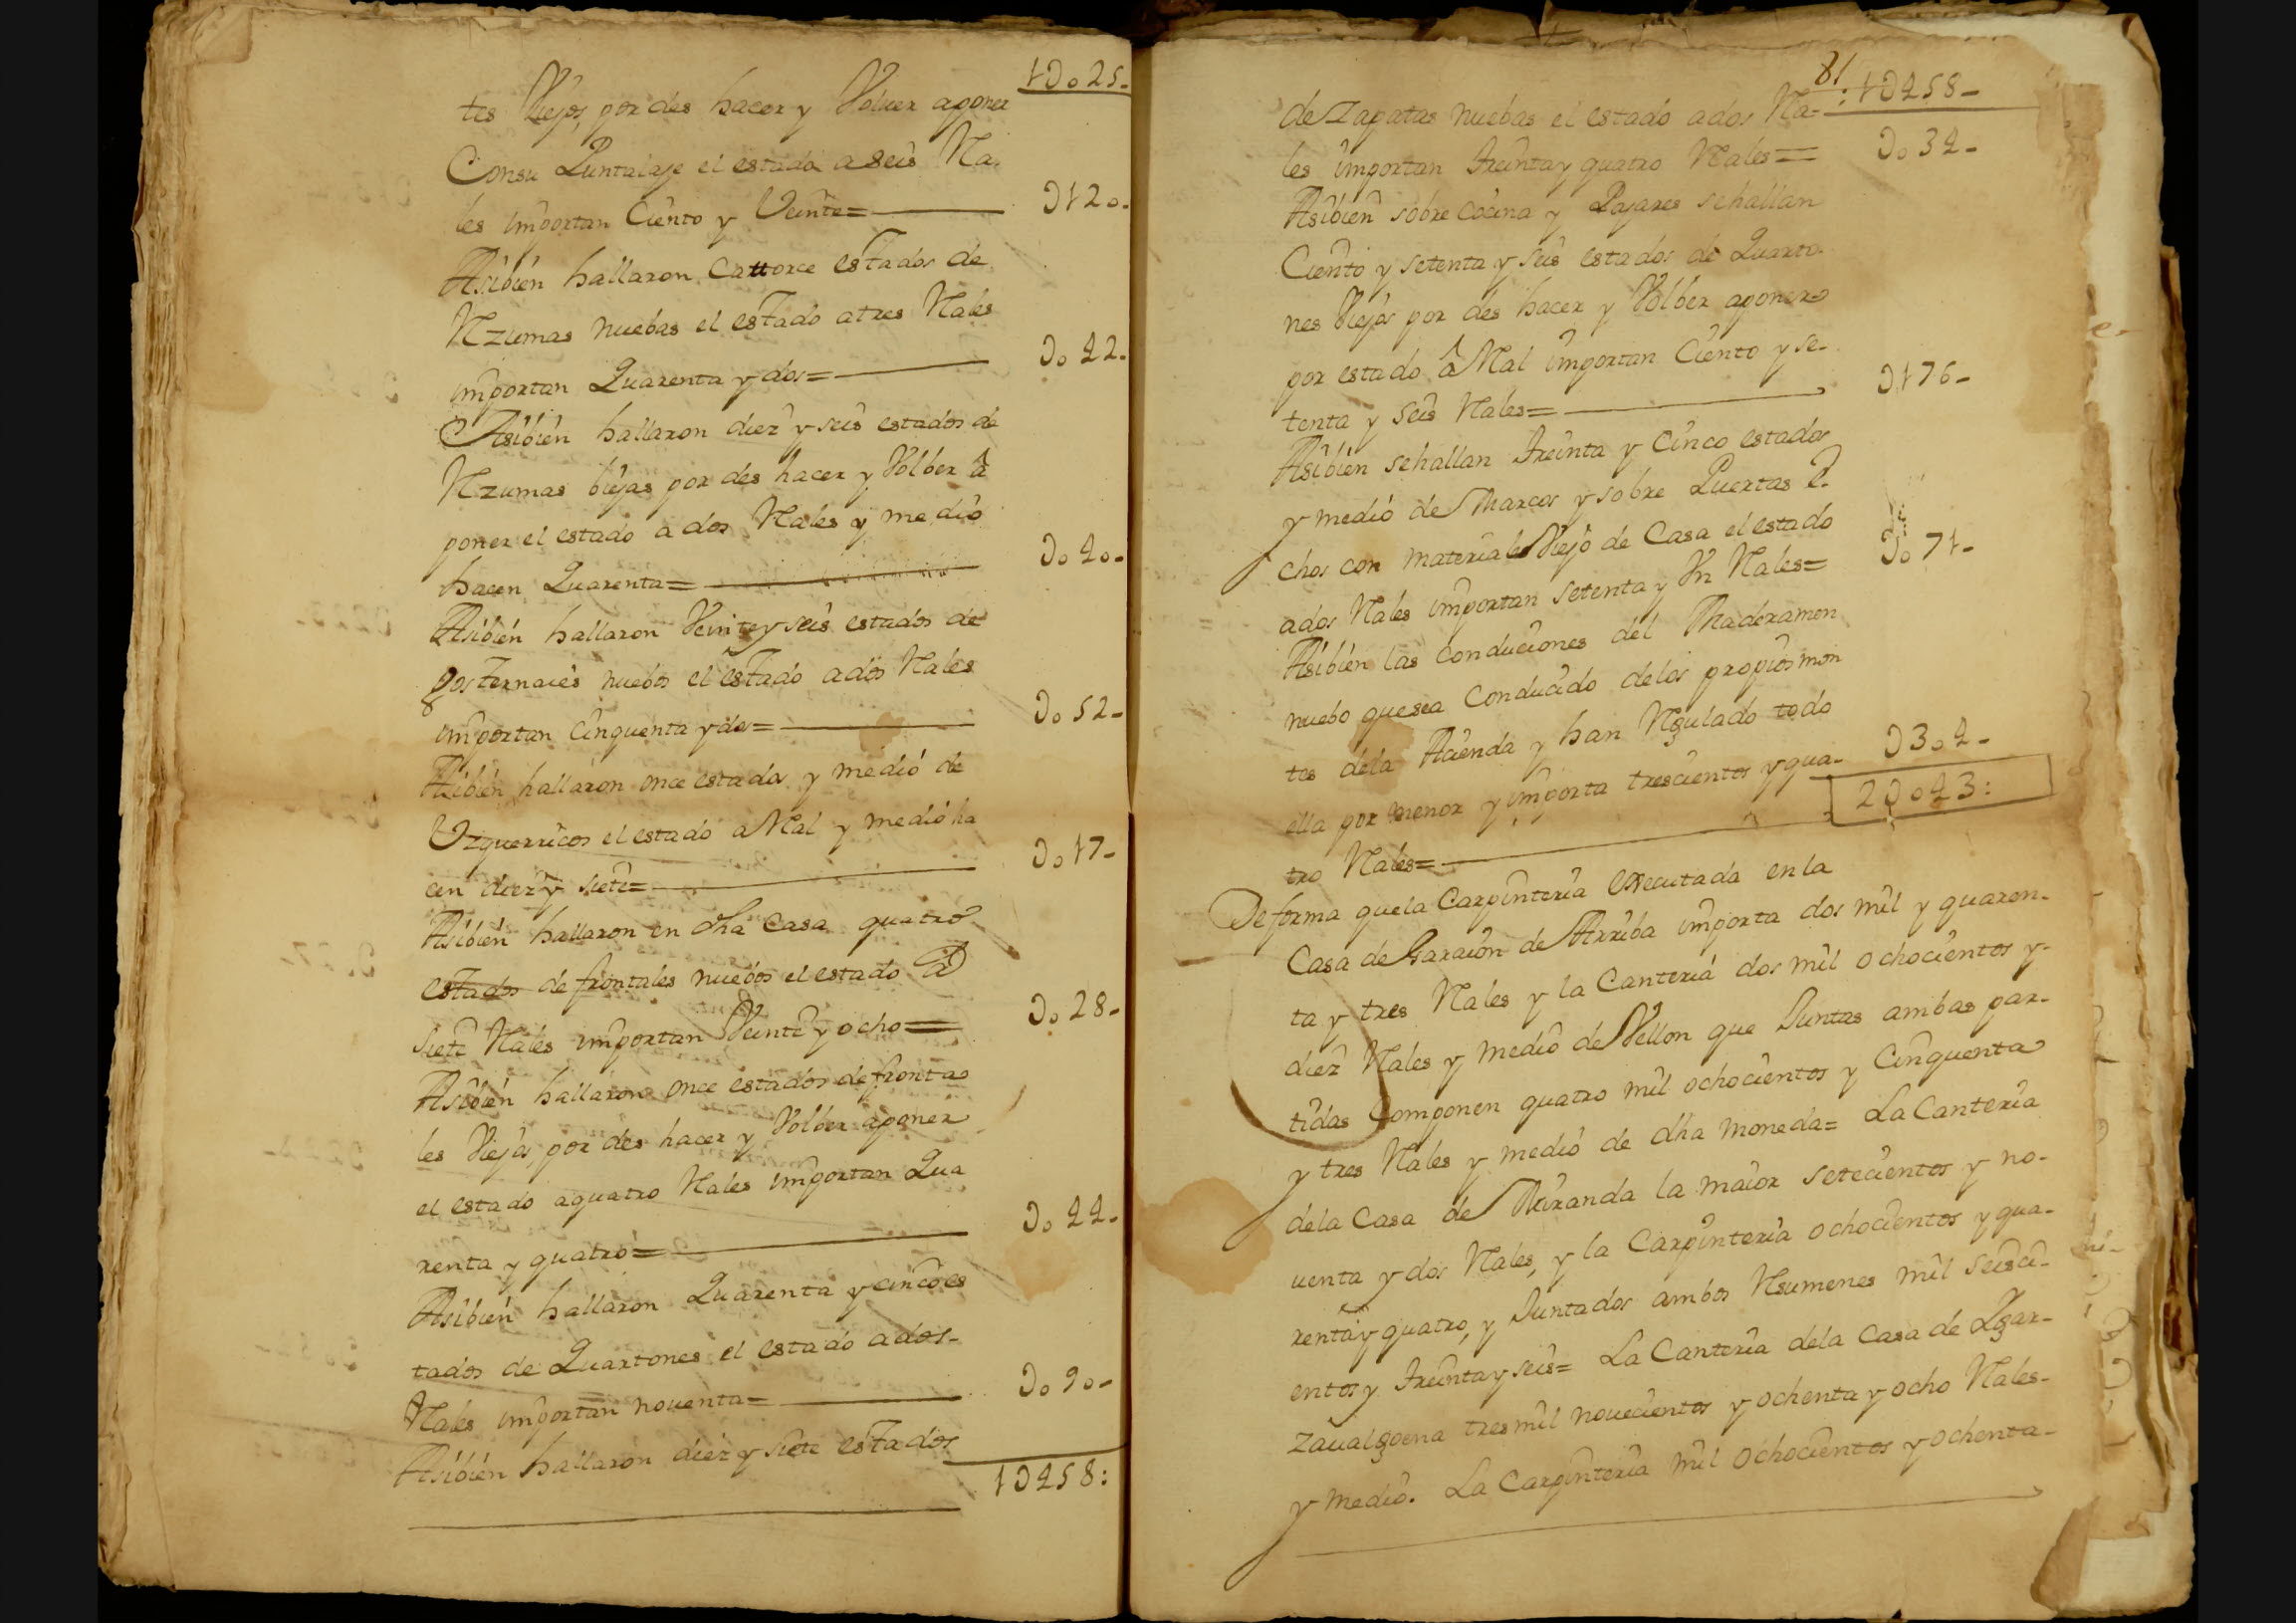 1U025-
tes Viejos, por des hacer y Volver aponer
Consu Puntalaje el estado a seis Rea-
les importan Ciento y Veinte= U120-
Asibien hallaron Cattorce estados de
Rezumas nuebas el estado atres Reales
importan Quarenta y dos= U042-
Asibien hallaron diez y seis estados de
Rezumas biejas por des hacer y Volber â
poner el estado a dos Reales y medio
hacen Quarenta= U040-
Asibien hallaron Veinte y seis estados de
posternaies nuebos el estado ados Reales
importan Cinquenta y dos= U052-
Asibien hallaron once estados y medio de
Vzquerricos el estado a Real y medio ha
cen diez y siete= U017-
Asibien hallaron en dha Casa quatro
estados de frontales nuebos el estado â
siete Reales importan Veinte y ocho= U028-
Asibien hallaron once estados de fronta
les Viejos, por des hacer y Volber aponer
el estado aquatro Reales importan Qua
renta y quatro= U044-
Asibien hallaron Quarenta y cinco es
tados de Quartones el estado ados-
Reales importan noventa= U090-
Asibien hallaron diez y siete estados
1U458:
81
:1U458-
de Zapatas nuebas el estado ados Rea=
les importan Treinta y quatro Reales= U034-
Asibien sobre Cocina y Pajares sehallan
Ciento y setenta y seis estados de Quarto-
nes Viejos por des hacer y Volber aponer
por estado â Real importan Ciento y se-
tenta y seis Reales= U176-
Asibien sehallan Treinta y Cinco estados
y medio de Marcos y sobre Puertas e-
chos con materiales Viejo de Casa el estado
ados Reales importan setenta y Un Reales= U071-
Asibien las Conduciones del Maderamen
nuebo quesea Conducido delos propios mon
tes dela Acienda y han Regulado todo
ella por menor y importa trescientos y qua-
tro Reales= U304-
2U043:
De forma quela Carpinteria executada en la
Casa de Garaion de Arriba importa dos mil y quaren-
ta y tres Reales y la Canteria dos mil ochocientos y-
diez Reales y medio de Vellon que Juntas ambas par-
tidas Componen quatro mil ochocientos y Cinquenta
y tres Reales y medio de dha moneda= La Canteria
dela Casa de Miranda la maior setecientos y no-
uenta y dos Reales, y la Carpinteria ochocientos y qua-
renta y quatro, y Juntados ambos Resumenes mil seisci-
entos y Treinta y seis= La Canteria dela Casa de Lgar-
zaualgoena tres mil novecientos y ochenta y ocho Reales-
y medio. La Carpinteria mil ochocientos y ochenta-